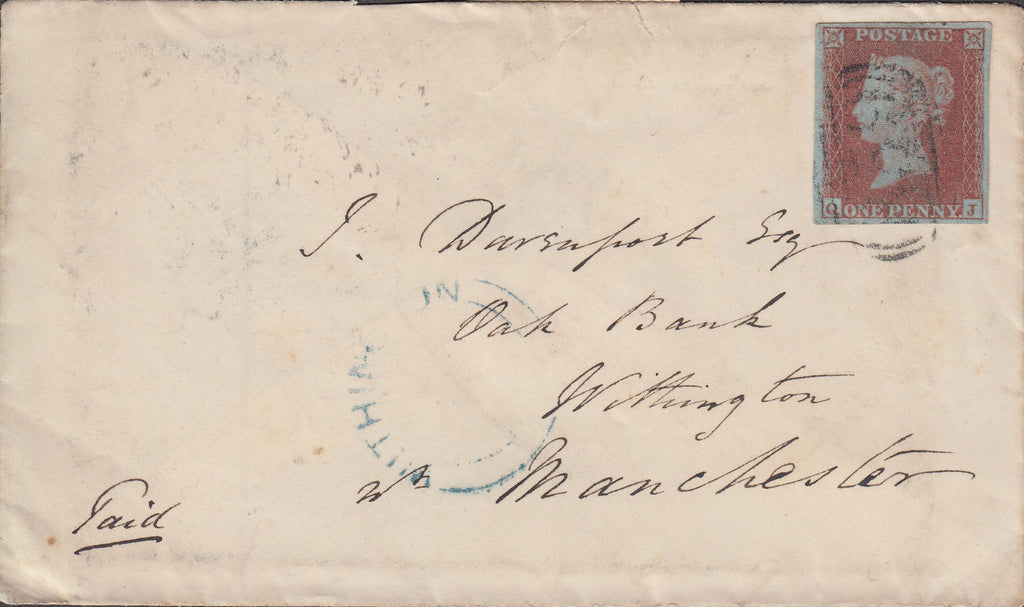 POSTAGE
Q ONE PENNY J
J. Davenport Esq
Oak Bank
Withington
nr Manchester
Paid